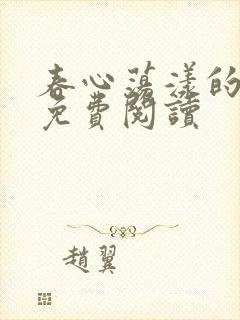 春心蕩漾的
免費閱讀
趙翼